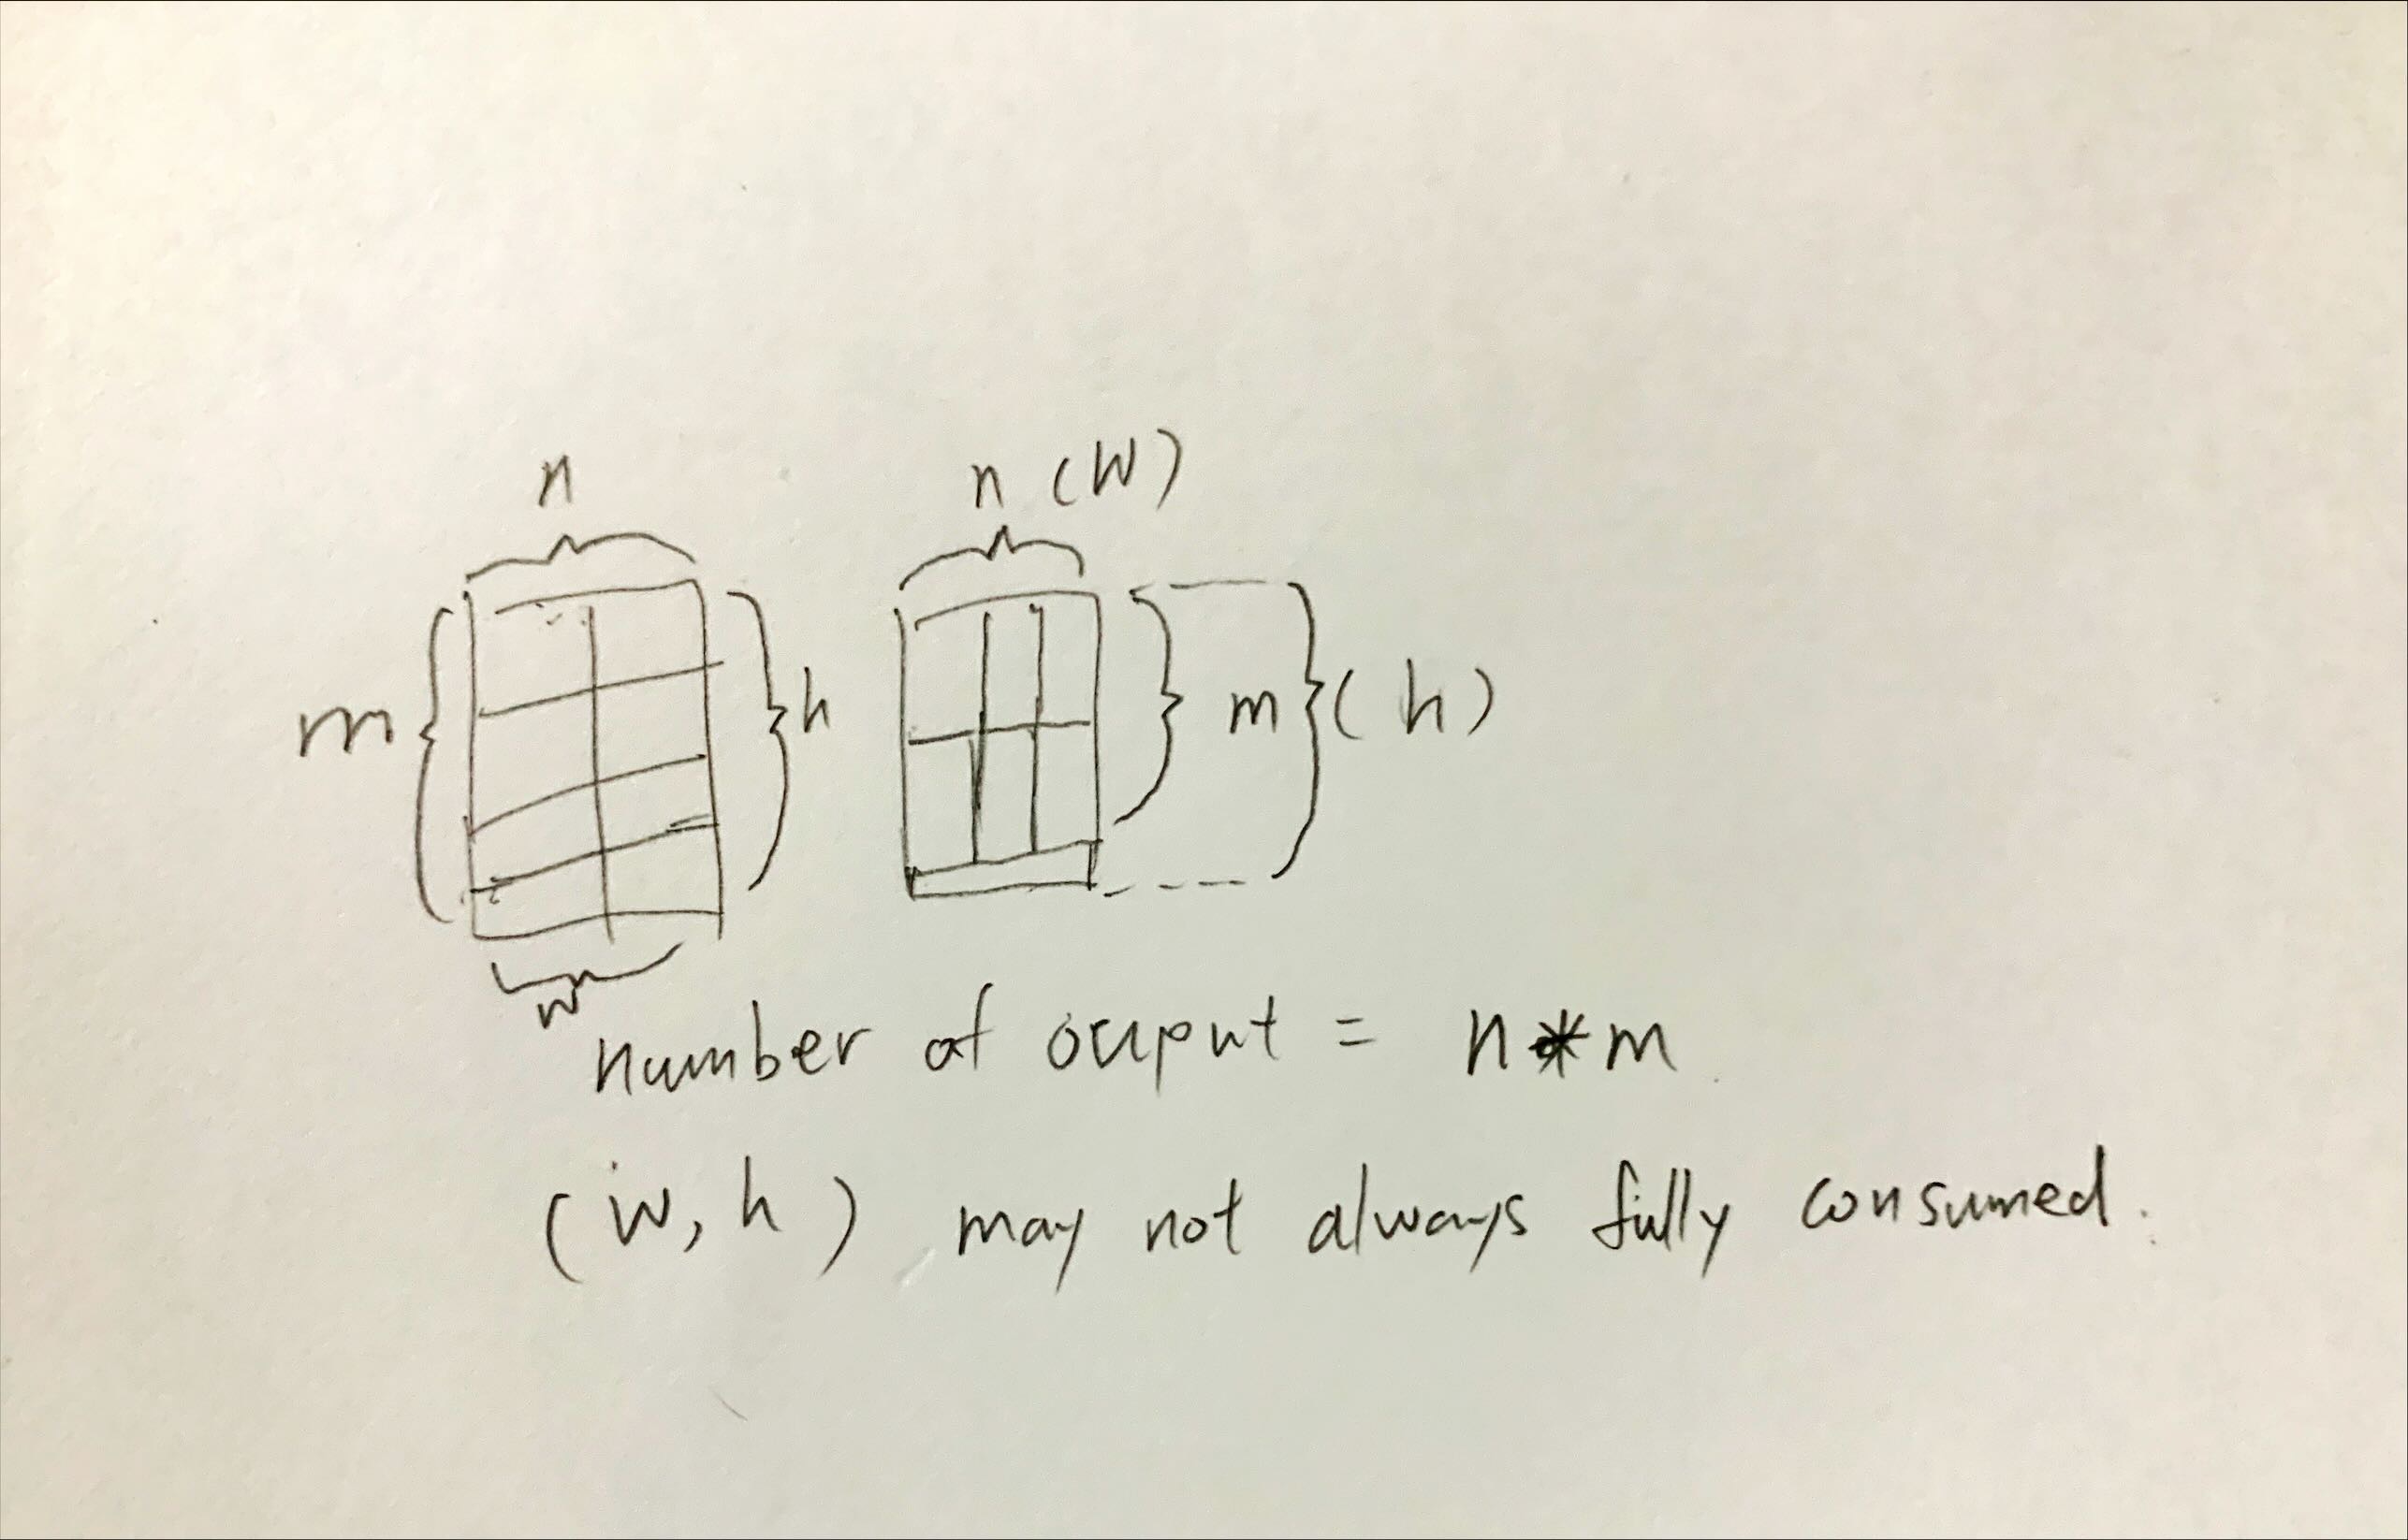 n n (W)
m h m ( h )
w
number of ouput = n * m
( w, h ) may not always fully consumed.